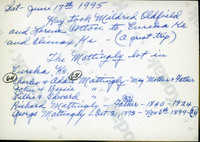 Sat. June 17th 1995
Kay took Mildred Oldfield
and Doreen Cotton to Eureka Ks
and Climax, Ks. (a great trip)
The Mattingly lot in
Eureka Ks.
Charles & Addie Mattingly - my Mother & Father
John & Bessie "
Lillie & Edward "
Richard Mattingly - Father - 1840 - 1924
George Mattingly - 1898 - Nov 1899